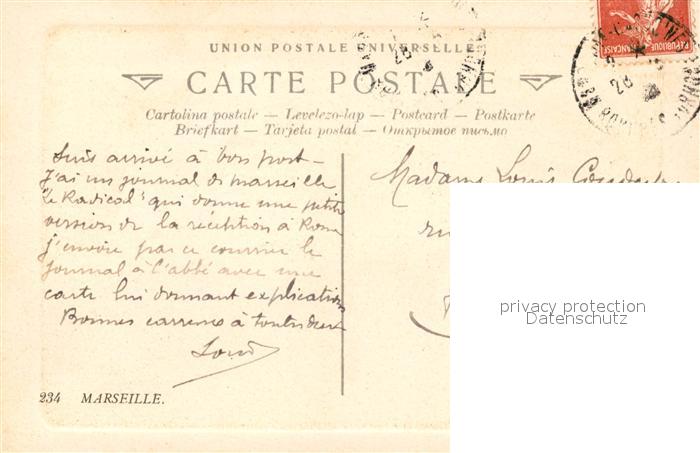 UNION POSTALE UNIVERSELLE
CARTE POSTALE
Cartolina postale — Levelezo-lap — Postcard — Postkarte
Briefkart — Tarjeta postal — Открытое письмо
REPUBLIQUE FRANÇAISE
28
28
Suis arrivé à bon port —
J'ai un journal de Marseille
"Le Radical" qui donne une petite
version de la réception à Rome
j'envoie par ce courrier le
journal à l'abbé avec une
carte lui donnant explication
Bonnes caresses à toutes deux
Louis
Madame Louis
privacy protection
Datenschutz
234 MARSEILLE.